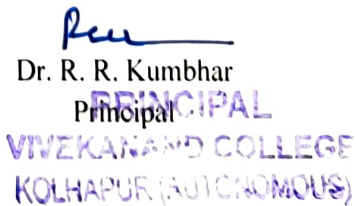 Dr. R. R. Kumbhar
Principal
PRINCIPAL
VIVEKANAND COLLEGE
KOLHAPUR (AUTONOMOUS)